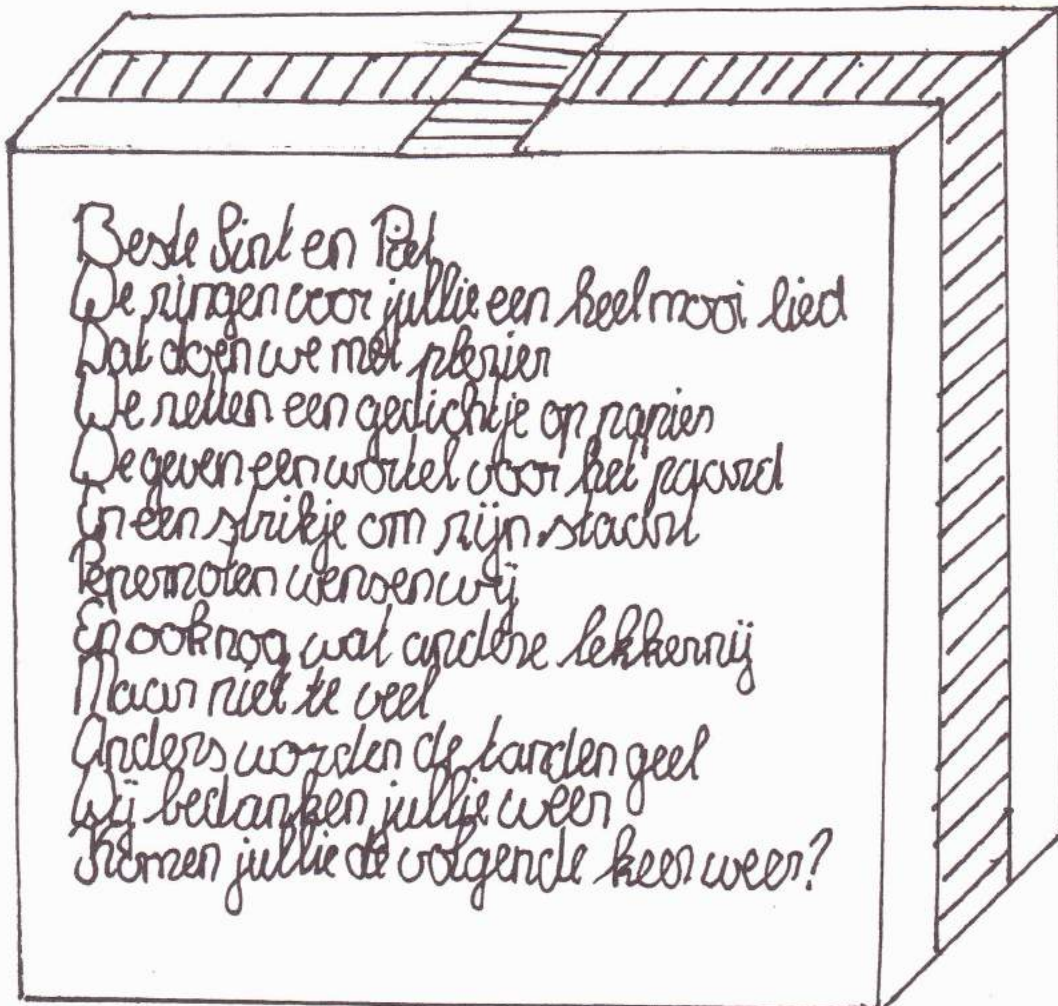 Beste Sint en Piet
We zingen voor jullie een heel mooi lied
Dat doen we met plezier
We zetten een gedichtje op papier
We geven een wortel voor het paard
En een strikje om zijn staart
Pepernoten wensen wij
En ook nog wat andere lekkernij
Maar niet te veel
Anders worden de tanden geel
Wij bedanken jullie weer
Komen jullie de volgende keer weer?